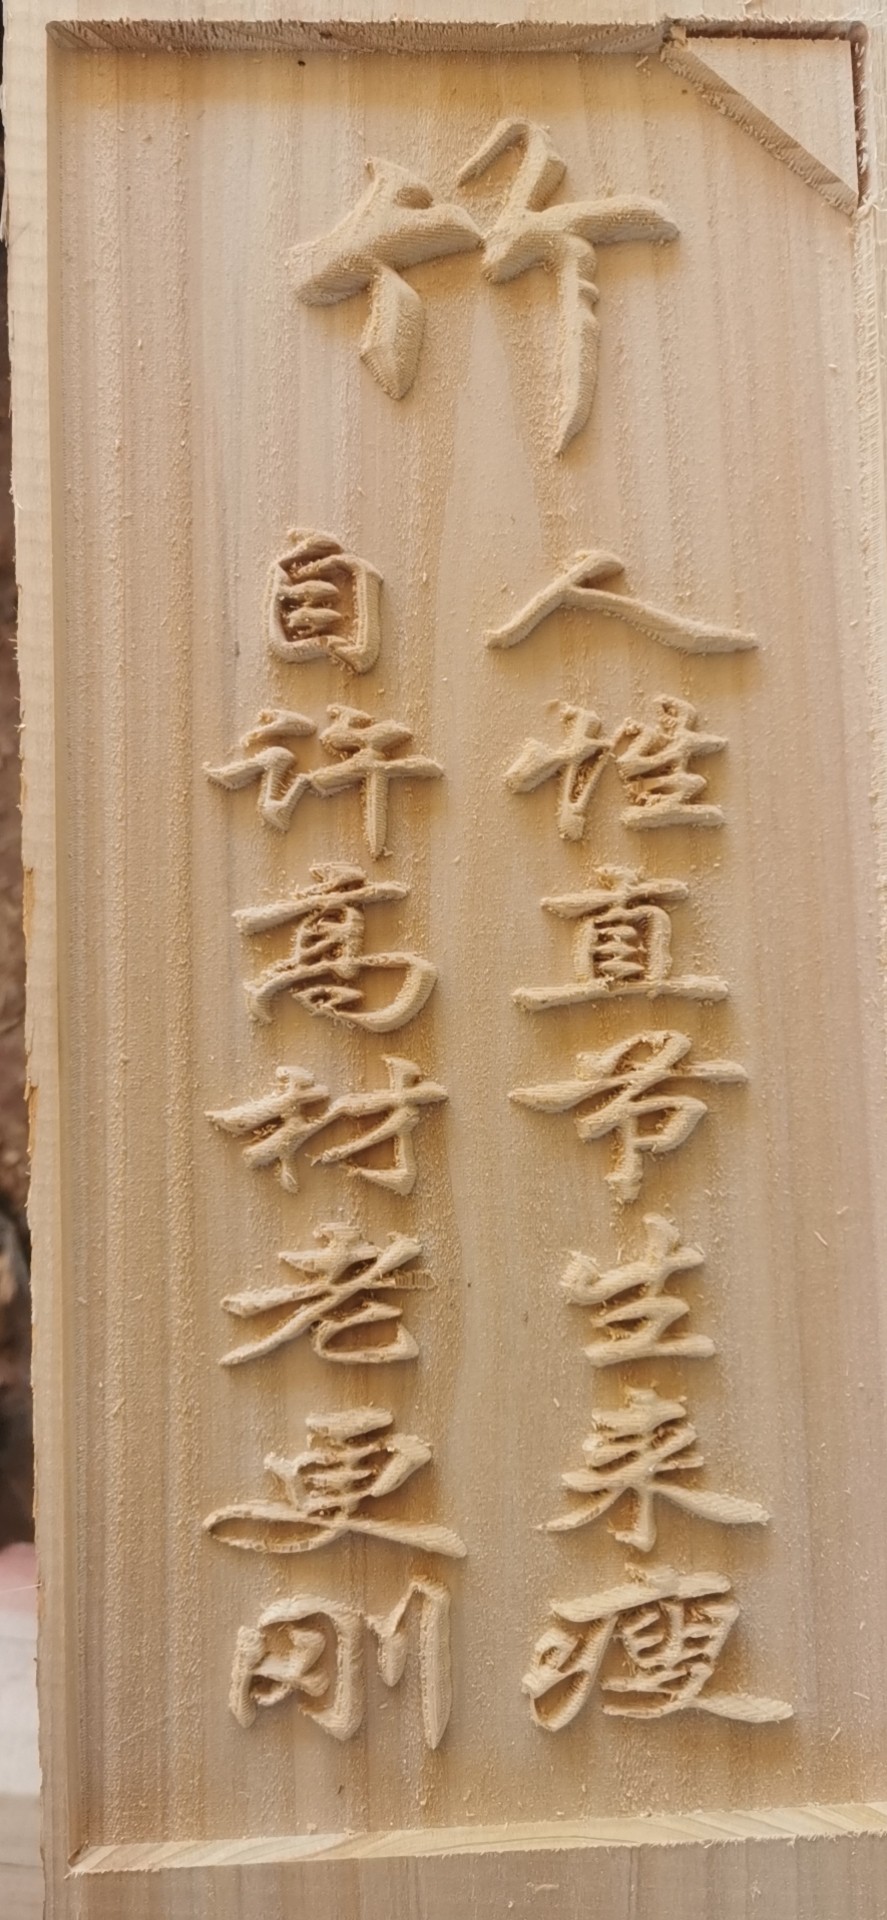 竹
人性直节生来瘦
自许高材老更刚